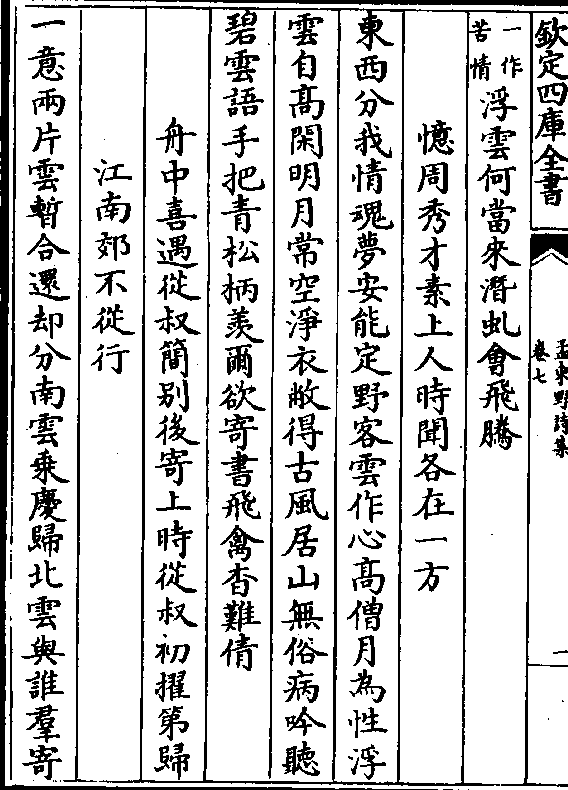 欽定四庫全書
孟東野詩集
卷七
一
一作
苦情
浮雲何當來潛虬會飛騰
憶周秀才素上人時聞各在一方
東西分我情魂夢安能定野客雲作心高僧月為性浮
雲自高閑明月常空淨衣敝得古風居山無俗病吟聽
碧雲語手把青松柄羨爾欲寄書飛禽杳難倩
舟中喜遇從叔簡别後寄上時從叔初擢第歸
江南郊不從行
一意兩片雲暫合還却分南雲乘慶歸北雲與誰羣寄